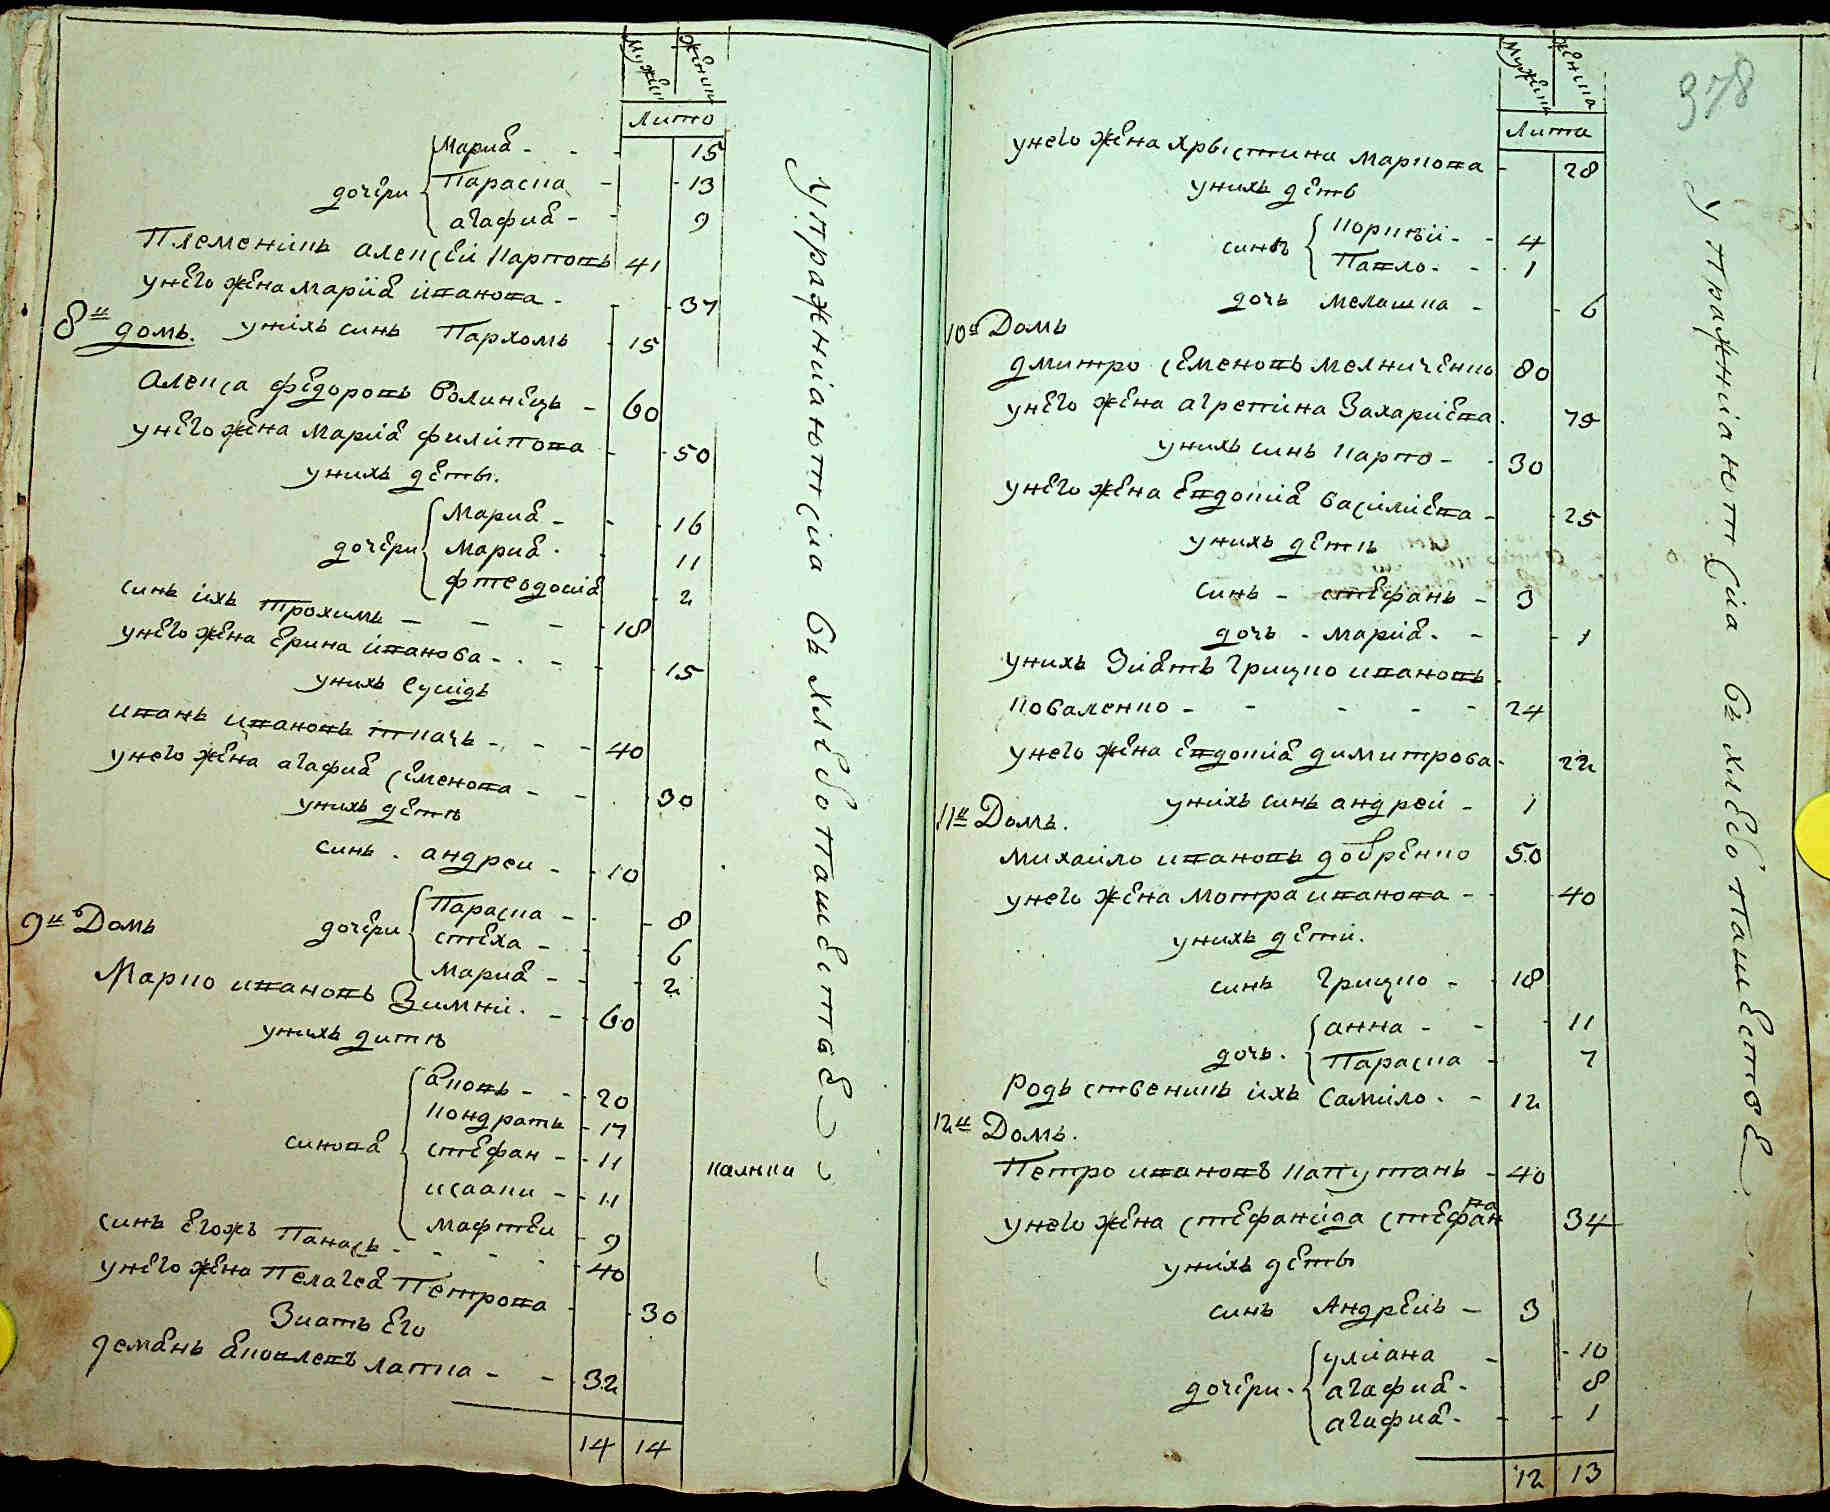 мужеп женпи
Лито
Мариа - - 15
дочери Параска - 13
агафиа - 9
Племенікъ алексѣй карповъ 41
унего жена мариа иванова - 37
8й домъ. уніхъ синъ Пархомъ 15
Алекса федоровъ волинецъ - 60
унего жена мариа филипова - 50
унихъ деты.
Мариа - 16
дочери Мариа - 11
фтеодосіа 2
синъ ихъ трохимъ - - - 18
унего жена ерина іванова - - 15
унихъ сусідъ
иванъ ивановъ ткачъ - - - 40
унего жена агафиа семенова - - 30
унихъ детѣ
синъ. андреи - - 10
9й Домъ
Параска - 8
дочери стеха - 6
Мариа - 2
Марко ивановъ Зимні. - 60
унихъ дитѣ
аковъ - - 20
кондратъ - 17
синова стефан - 11
исааки - 11
мафтеи 9
синъ егожъ Панасъ - - - 40
унего жена Пелагеа Петрова 30
Зиатъ Его
деманъ аковлевъ латка - - 32
14 14
упражніаютсіа въ хлѣбопашествѣ
калѣки
378
мужеп женпа
Лита
унего жена христина маркова - 28
унихъ детѣ
корнѣй - 4
синъ Павло - 1
дочъ мелашка - 6
10й Домъ
дмитро семеновъ мелниченко 80
унего жена агрепина Захариева. 79
унихъ синъ карпо - 30
унего жена евдокіа василиева - 25
унихъ детѣ
синъ - стефанъ - 3
дочъ - мариа - - 1
унихъ Зиатъ грицко ивановъ
коваленко - - - - 24
унего жена евдокіа димитрова - 22
уніхъ синъ андреи - 1
11й Домъ.
михаило ивановъ добренко 50
унего жена мотра иванова - 40
унихъ дети.
синъ грицко - 18
анна - - 11
дочъ. Параска - 7
Родъственикъ іхъ Самійло - 12
12й Домъ.
Петро ивановъ капутанъ - 40
унего жена стефаніда стефанва 34
уніхъ деты
синъ Андрейъ - 3
улиана - 10
дочери. агафиа - 8
агифиа - 1
12 13
упражніаютсіа въ хлебопашествѣ